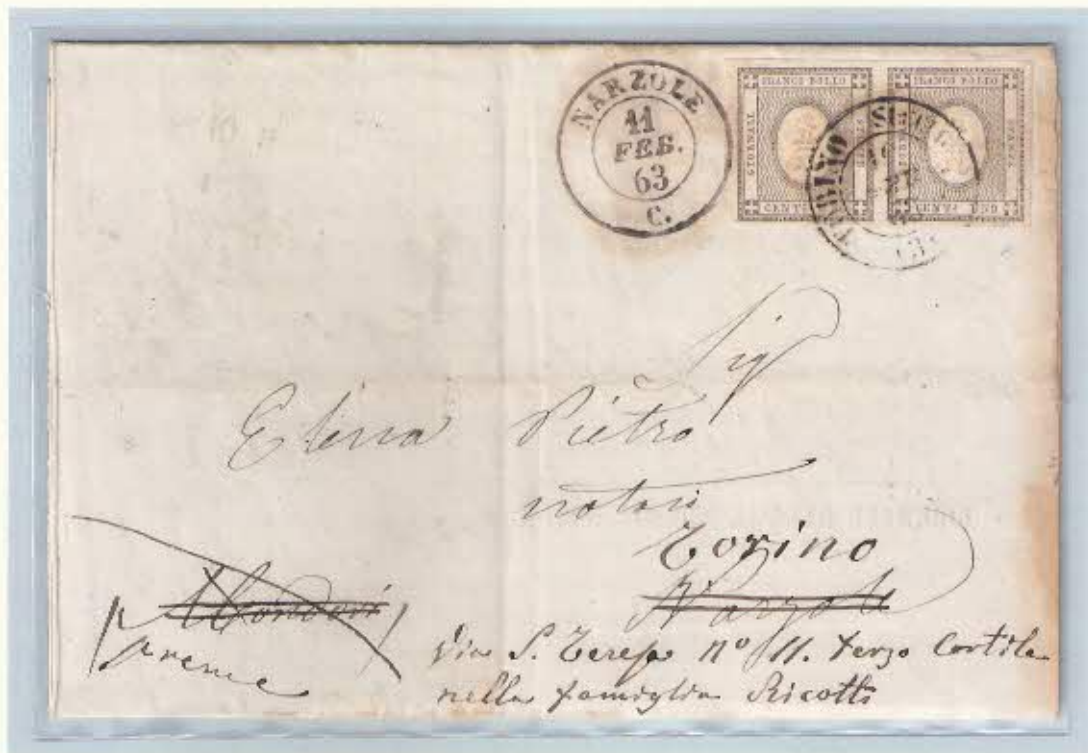 NARZOLE
11
FEB.
63
C.
FRANCO BOLLO
GIORNALI STAMPE
CENT.
FRANCO BOLLO
GIORNALI STAMPE
CENT. UNO
TORINO
Sig
Elena Pietro
notari
Torino
Narzole
Mondovì
Via S. Teresa nº 11. terzo Cortile
nella famiglia Ricotti